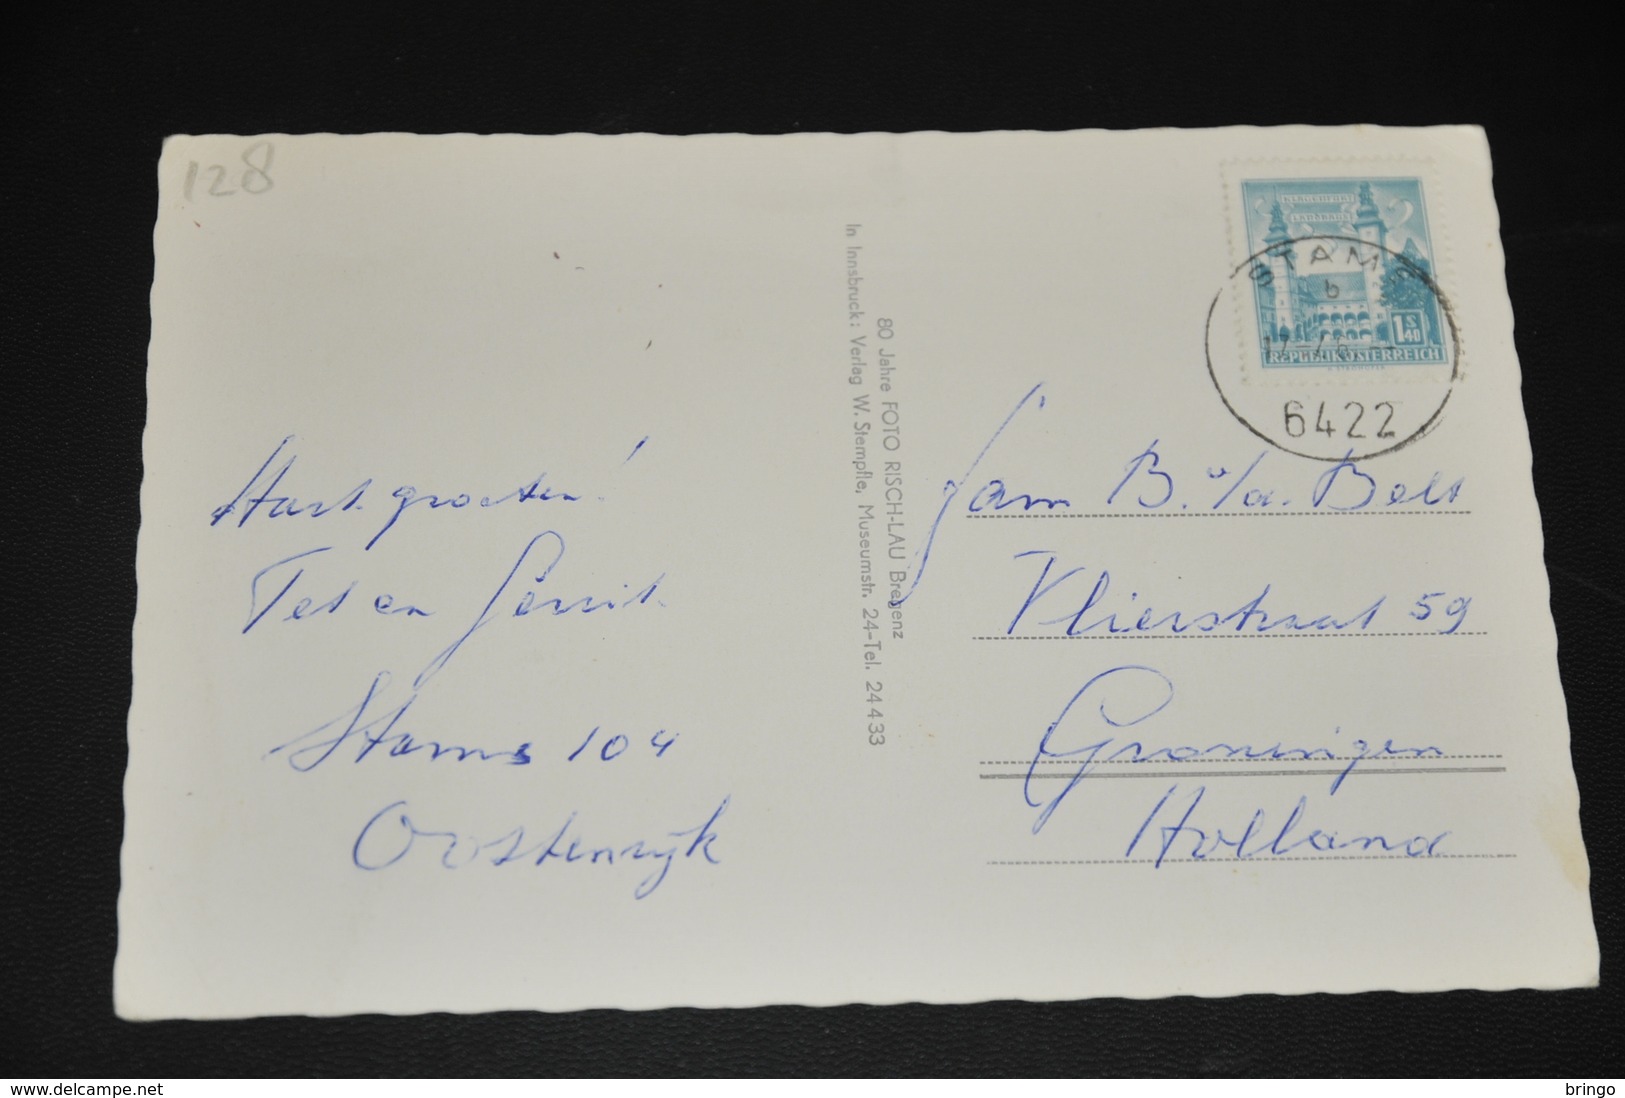 128
KLAGENFURT
LANDHAUS
STAMS
b
1S40
REPUBLIK ÖSTERREICH
6422
80 Jahre FOTO RISCH-LAU Bregenz
In Innsbruck: Verlag W. Stempfle, Museumstr. 24-Tel. 24433
Hart. groeten!
Tet en Gerrit.
Stams 104
Oostenryk
Fam B. v/d. Belt
Vlierstraat 59
Groningen
Holland
delcampe.net
bringo